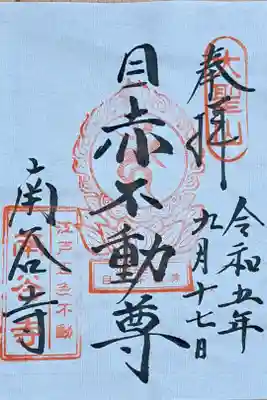 奉拝
大聖山
令和五年
九月十七日
目赤不動尊
南谷寺
江戸五色不動